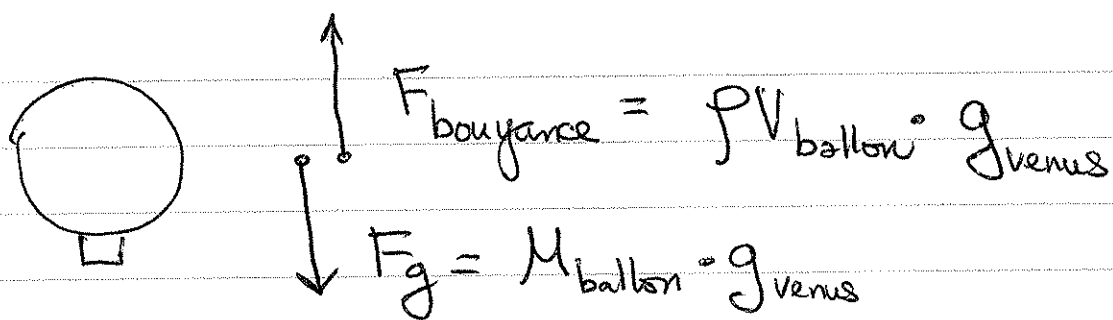 F_bouyance = ρV_ballon · g_venus
F_g = M_ballon · g_venus